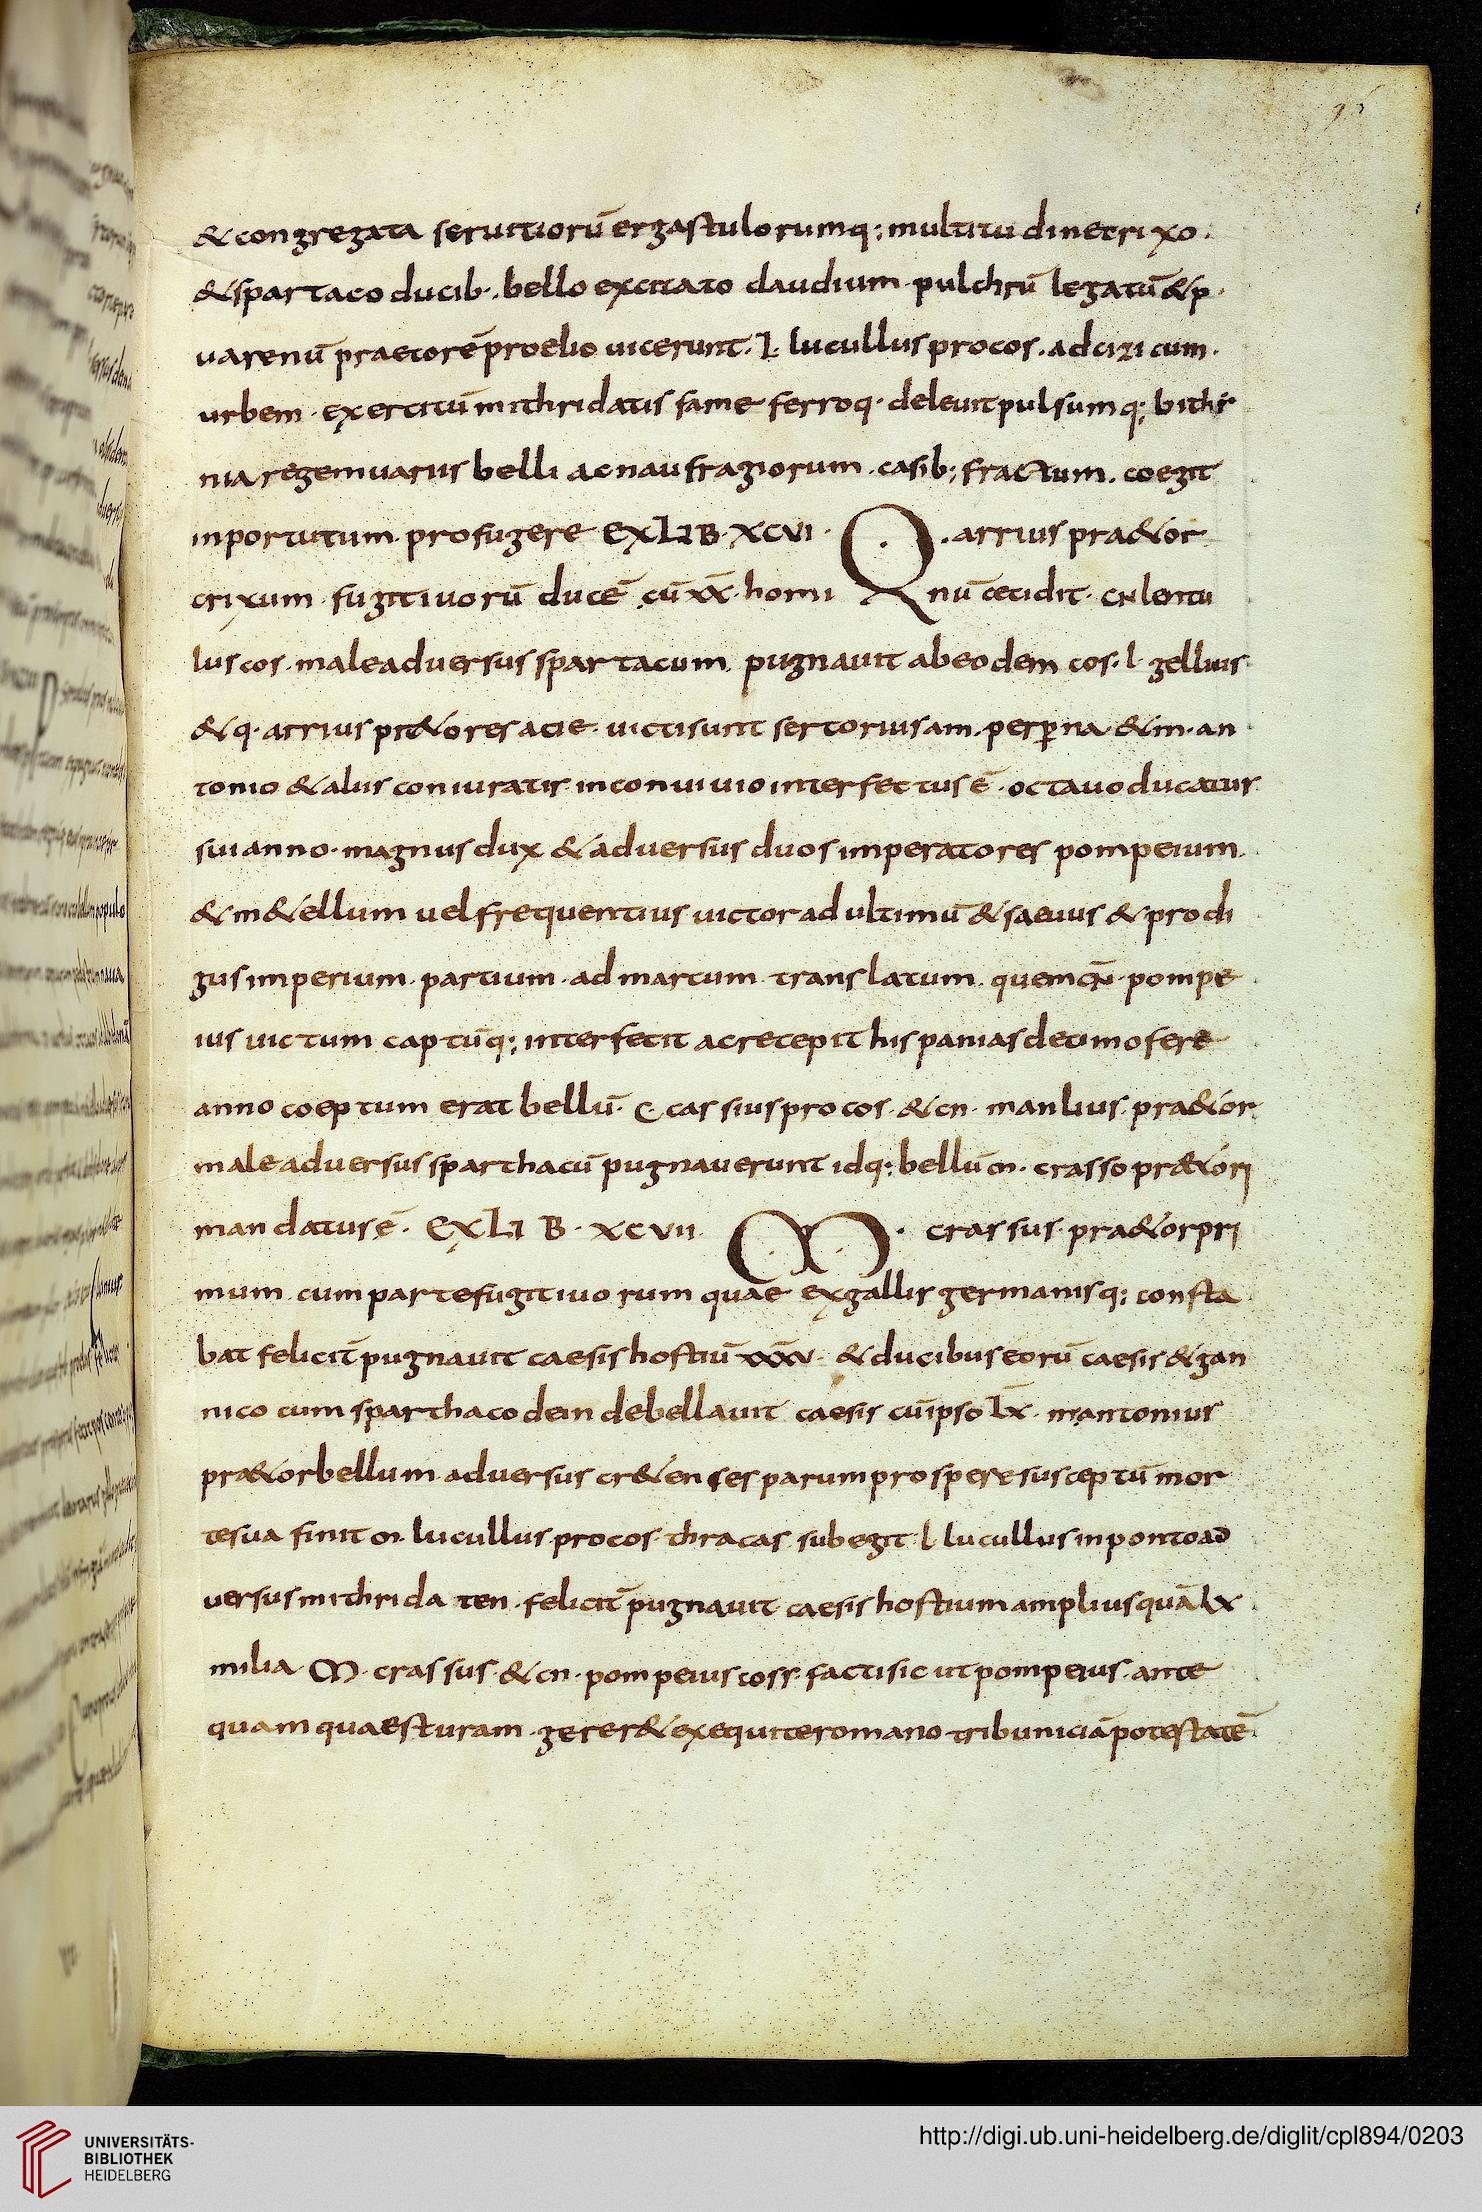 96
& congregata seruitiorū ergastulorumq; multitudinetrixo.
& spartaco ducib·. bello excitato claudium pulchrū legatū & p·
uarenū praetorē proelio uicerunt. L. lucullus procos. ad cizicum.
urbem· exercitū mithridatis fame ferroq· deleuit pulsumq; bithi
nia regem uariis belli ac naufragiorum. casib; fractum. coegit
inportutum profugere EX LIB· XCVI· Q. arrius pra&or
crixum fugitiuorū ducē cū x̄x̄· homi nū cecidit· cn lentu
lus cos· male aduersus spartacum pugnauit ab eodem cos· l· gellius
& q· arrius pr&ores acie· uicti sunt sertorius am. perperna & m· an
tonio & aliis coniuratis in conuiuio interfectus ē· octauo ducatus
sui anno· magnus dux & aduersus duos imperatores pompeium.
& m&ellum uel frequentius uictor ad ultimū & saeuus & prodi
gus imperium partium· ad martum translatum. quem cn̄· pompe
ius uictum captūq; interfecit ac recepit hispanias decimo fere
anno coeptum erat bellū· c· cassius procos· & cn· manlius pra&or
male aduersus sparthacū pugnauerunt idq; bellū m· crasso praetori
mandatus ē· EX LIB· XCVII M· crassus pra&or pri
mum cum parte fugitiuorum quae ex gallis germanisq; consta
bat felicit̄ pugnauit caesis hostiū x̄x̄x̄v̄· & ducibus eorū caesis & gan
nico cum sparthaco dein debellauit caesis cū ipso L̄X̄· m antonius
pra&or bellum aduersus cr&enses parum prospere susceptū mor
te sua finit m lucullus procos· thracas subegit l lucullus in ponto ad
uersus mithridaten· felicit̄ pugnauit caesis hostium amplius quā lx
milia M· crassus & cn· pompeius coss· facti sic ut pompeius ante
quam quaesturam gerer& ex equite romano tribuniciā potestatē
UNIVERSITÄTS-
BIBLIOTHEK
HEIDELBERG
http://digi.ub.uni-heidelberg.de/diglit/cpl894/0203